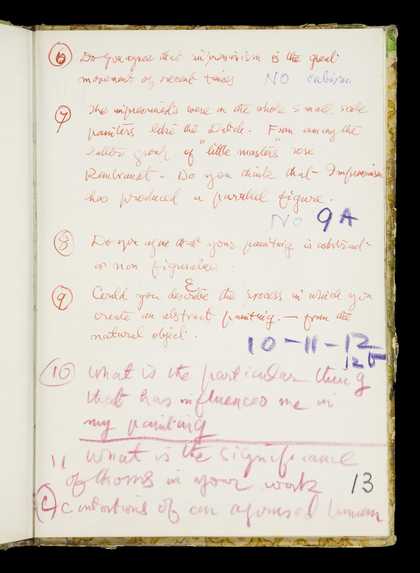 6 Do you agree that impressionism is the great
movement of recent times NO cubism
7 The impressionists were on the whole small scale
painters like the Dutch. From among the
Dutch group of "little masters" rose
Rembrandt. Do you think that Impressionism
has produced a parallel figure.
NO 9A
8 Do you agree that your painting is abstract
or non figurative.
9 Could you describe the process in which you
create an abstract painting — from the
natural object.
10-11-12
12b
10 What is the particular thing
that has influences me in
my painting
11 What is the significance
of thorns in your work 13
of an agonised human